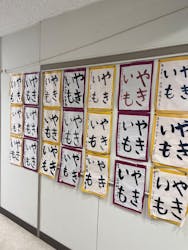 やき
いも
やき
いも
やき
いも
やき
いも
やき
いも
やき
いも
やき
いも
やき
いも
やき
いも
やき
いも
やき
いも
やき
いも
やき
いも
やき
いも
やき
いも
やき
いも
やき
いも
やき
いも
やき
いも
やき
いも
やき
いも